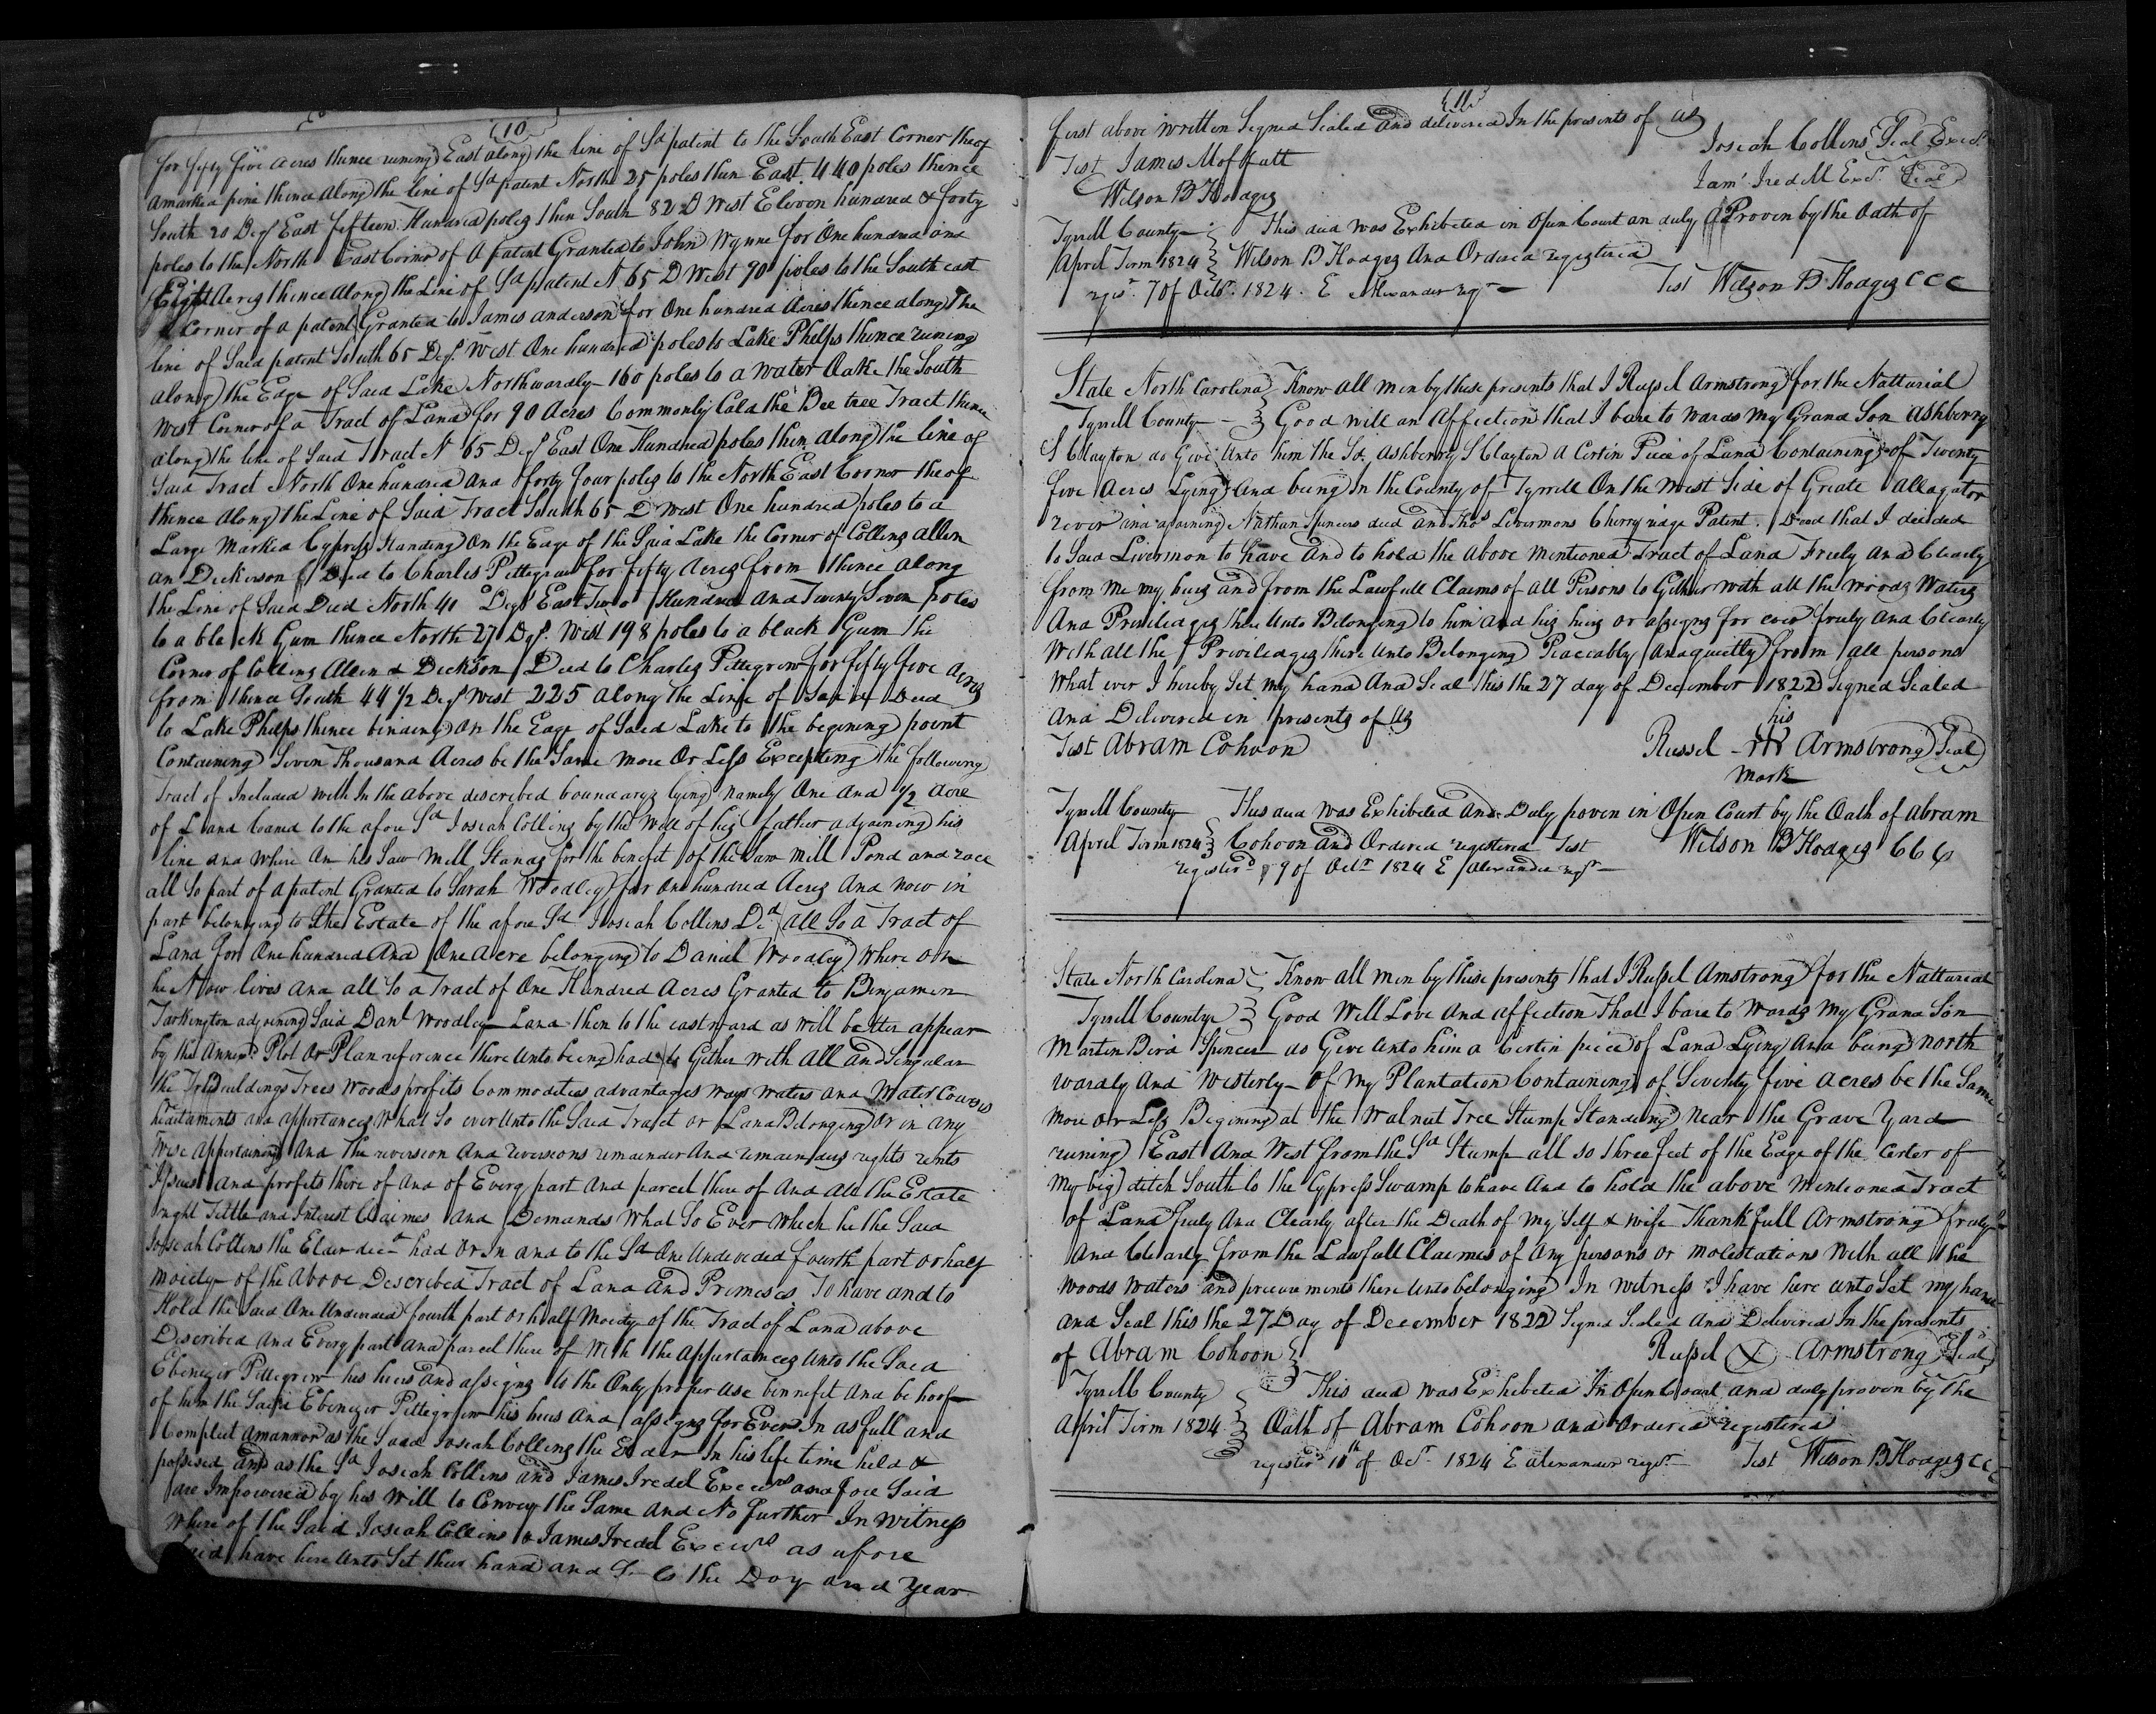 (10)
for fifty five acres thence runing East along the line of Sd patent to the South East Corner theof
amarked pine thence along the line of Sd patent North 25 poles then East 440 poles thence
South 20 Degs East fifteen Hundred poles then South 82 D West Eleven hundred & forty
poles to the North East Corner of a patent Granted to John Wynne for One hundred and
Eight Acres thence along the Line of Sd patent N 65 D West 90 poles to the South east
Corner of a patent Granted to James anderson for One hundred Acres thence along the
line of Said patent South 65 Degs West One hundred poles to Lake Phelps thence runing
along the Edge of Said Lake Northwardly 160 poles to a water Oake the South
West Corner of a Tract of Land for 90 Acres Commonly Cald the Bee tree Tract thence
along the line of Said Tract N 65 Degs East One Hundred poles then along the line of
Said Tract North One hundred and forty four poles to the North East Corner theof
thence along the Line of Said Tract South 65 D west One hundred poles to a
Large Marked Cypress Standing On the Edge of the Said Lake the Corner of Collins allen
an Dickerson Deed to Charles Pettegrew for fifty Acres from thence along
the Line of Said Deed North 41 Degs East Two Hundred and Twenty Seven poles
to a black Gum thence North 27 Degs. West 198 poles to a black Gum the
Corner of Collins Allen & Dickson Deed to Charles Pettegrew for fifty five acres
from thence South 44 1/2 Degs West 225 along the Line of Said Deed
to Lake Phelps thence binding on the Edge of Said Lake to the begining point
Containing Seven Thousand Acres be the Same more Or Less Excepting the following
Tract of Included with In the above described boundarys lying namely One and 1/2 acre
of Land loaned to the afore Sd Josiah Collins by the Will of his father adjoining his
line and where An his Saw Mill Stands for the benefit of the Saw Mill Pond and race
all So part of a patent Granted to Sarah Woodley for One hundred Acres and now in
part belonging to the Estate of the afore Sd Josiah Collins Dd all So a Tract of
Land for One hundred And One Acre belonging to Daniel Woodley where on
he Now lives and all So a Tract of One Hundred Acres Granted to Benjamin
Tarkington adjoining Said Danl Woodley Land then to the eastward as will better appear
by the Annexd Plot Or Plan reference there unto being had to Gether with All and Singular
the Buildings Trees woods profits Commodities advantages ways waters and Water Courses
heaitaments and appurtances What So ever Unto the Said Tract or Land Belonging Or in any
Wise Appertaining And the reversion And reversions remainder And remainders rights rents
Issues and profits there of And of Every part And parcel there of And All the Estate
right Tittle and Interest Claimes And Demands What So Ever which he the Said
Josiah Collins the Elder decd had Or In and to the Sd One Undevided fourth part or half
Moiety of the Above Described Tract of Land and Premeses To have and to
Hold the Said One Undevided fourth part or half Moiety of the Tract of Land above
Described and Every part And parcel there of With the Appurtances Unto the Said
Ebenezer Pettegrew his heirs And assigns to the Only proper use bennefit And be hoof
of him the Said Ebenezer Pettegrew his heirs And assigns for Ever In as full and
Compleet amanner as the Said Josiah Collins the Elder In his life time held &
possesed and as the Sd Josiah Collins and James Iredel Execurs as afore Said
are Impowered by his Will to Convey the Same And No further In Witness
Where of the Said Josiah Collins & James Iredel Execurs as afore
said have here Unto Set their hand and the Day and Year
(11)
first above written Signed Sealed And delivered In the presents of us
Josiah Collins Seal Execr.
Test James Moffatt
Jams Iredell Exr. Seal
Wilson B Hodges
Tyrrell County This deed was Exhibeted in Open Court an duly Proven by the Oath of
April Term 1824 Wilson B Hodges And Ordered registered
regisr. 7 of Octr. 1824. E Alexander regr Test Wilson B Hodges CCC
State North Carolina Know all men by these presents that I Russel Armstrong for the Natturial
Tyrrell County Good will an Affection that I bare to wards my Grand Son Ashberry
S Clayton do Give Unto him the Sd. Ashberry S Clayton A Certin Peice of Land Containing of Twenty
five Acres Lying And being In the County of Tyrrell On the West Side of Greate Allagator
rever and ajoining Nathan Spencers deed and Thos Livermons Cherry ridge Patent. Deed that I deeded
to Said Livermon to have And to hold the above mentioned Tract of Land Freely And Clearly
from me my heirs and from the Lawfull Claims of all Persons to Gether with all the woods Waters
And Priviledges there Unto Belonging to him and his heirs or assigns for ever freely and Clearly
With all the Priviledges there Unto Belonging Peaceably And quietly from all persons
What ever I hereby Set my hand And Seal this the 27 day of December 1822 Signed Sealed
and Delivered in presents of us
his
Test Abram Cohoon Russel Armstrong Seal
Mark
Tyrrell County This deed was Exhibeted And Duly poven in Open Court by the Oath of Abram
April Term 1824 Cohoon And Ordered registered Test Wilson B Hodges CCC
registerd 9 of Octr 1824 E Alexander regr
State North Carolina Know all men by these presents that I Russel Amstrong for the Natturial
Tyrrell County Good Will Love And affection That I bare to Wards My Grand Son
Marten Bird Spencer do Give Unto him a Certin peice of Land Lying And being North
wardly And Westerly of My Plantation Containing of Seventy five Acres be the Same
more or Less Begining at the Walnut Tree Stump Standing Near the Grave Yard
runing East And West from the Sd Stump all so three feet of the Edge of the Center of
My big ditch South to the Cypress Swamp to have And to hold the above Mentioned Tract
of Land freely And Clearly after the Death of My Self & wife Thankfull Armstrong freely
And Clearly from the Lawfull Claimes of Any persons or Molestations With all the
woods Waters and preveuments there Unto belonging In witness I have here unto Set my hand
and Seal this the 27 Day of December 1822 Signed Sealed And Delivered In the presents
of Abram Cohoon Russel X Armstrong Seal
Tyrrell County This deed was Exhibeted In Open Court and duly proven by the
April Term 1824 Oath of Abram Cohoon and Ordered registered
registerd 11th of Octr 1824 E Alexander regr. Test Wilson B Hodges CCC